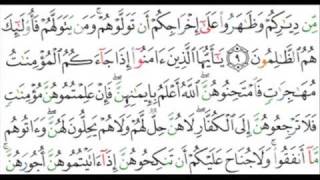 مِّن دِيَٰرِكُمْ وَظَٰهَرُوا۟ عَلَىٰٓ إِخْرَاجِكُمْ أَن تَوَلَّوْهُمْ ۚ وَمَن يَتَوَلَّهُمْ فَأُو۟لَٰٓئِكَ
هُمُ ٱلظَّٰلِمُونَ ٩ يَٰٓأَيُّهَا ٱلَّذِينَ ءَامَنُوٓا۟ إِذَا جَآءَكُمُ ٱلْمُؤْمِنَٰتُ
مُهَٰجِرَٰتٍ فَٱمْتَحِنُوهُنَّ ۖ ٱللَّهُ أَعْلَمُ بِإِيمَٰنِهِنَّ ۖ فَإِنْ عَلِمْتُمُوهُنَّ مُؤْمِنَٰتٍ
فَلَا تَرْجِعُوهُنَّ إِلَى ٱلْكُفَّارِ ۖ لَا هُنَّ حِلٌّ لَّهُمْ وَلَا هُمْ يَحِلُّونَ لَهُنَّ ۖ وَءَاتُوهُم
مَّآ أَنفَقُوا۟ ۚ وَلَا جُنَاحَ عَلَيْكُمْ أَن تَنكِحُوهُنَّ إِذَآ ءَاتَيْتُمُوهُنَّ أُجُورَهُنَّ ۚ